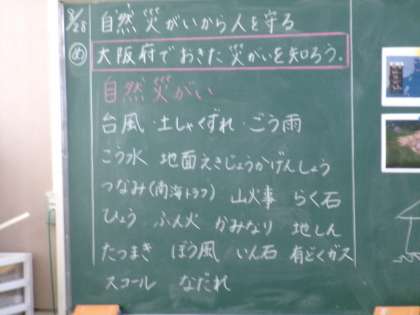 9/28 自然災がいから人を守る
め 大阪府でおきた災がいを知ろう。
自然災がい
台風・土しゃくずれ・ごう雨
こう水 地面えきじょうかげんしょう
つなみ(南海トラフ) 山火事 らく石
ひょう ふん火 かみなり 地しん
たつまき ぼう風 いん石 有どくガス
スコール なだれ